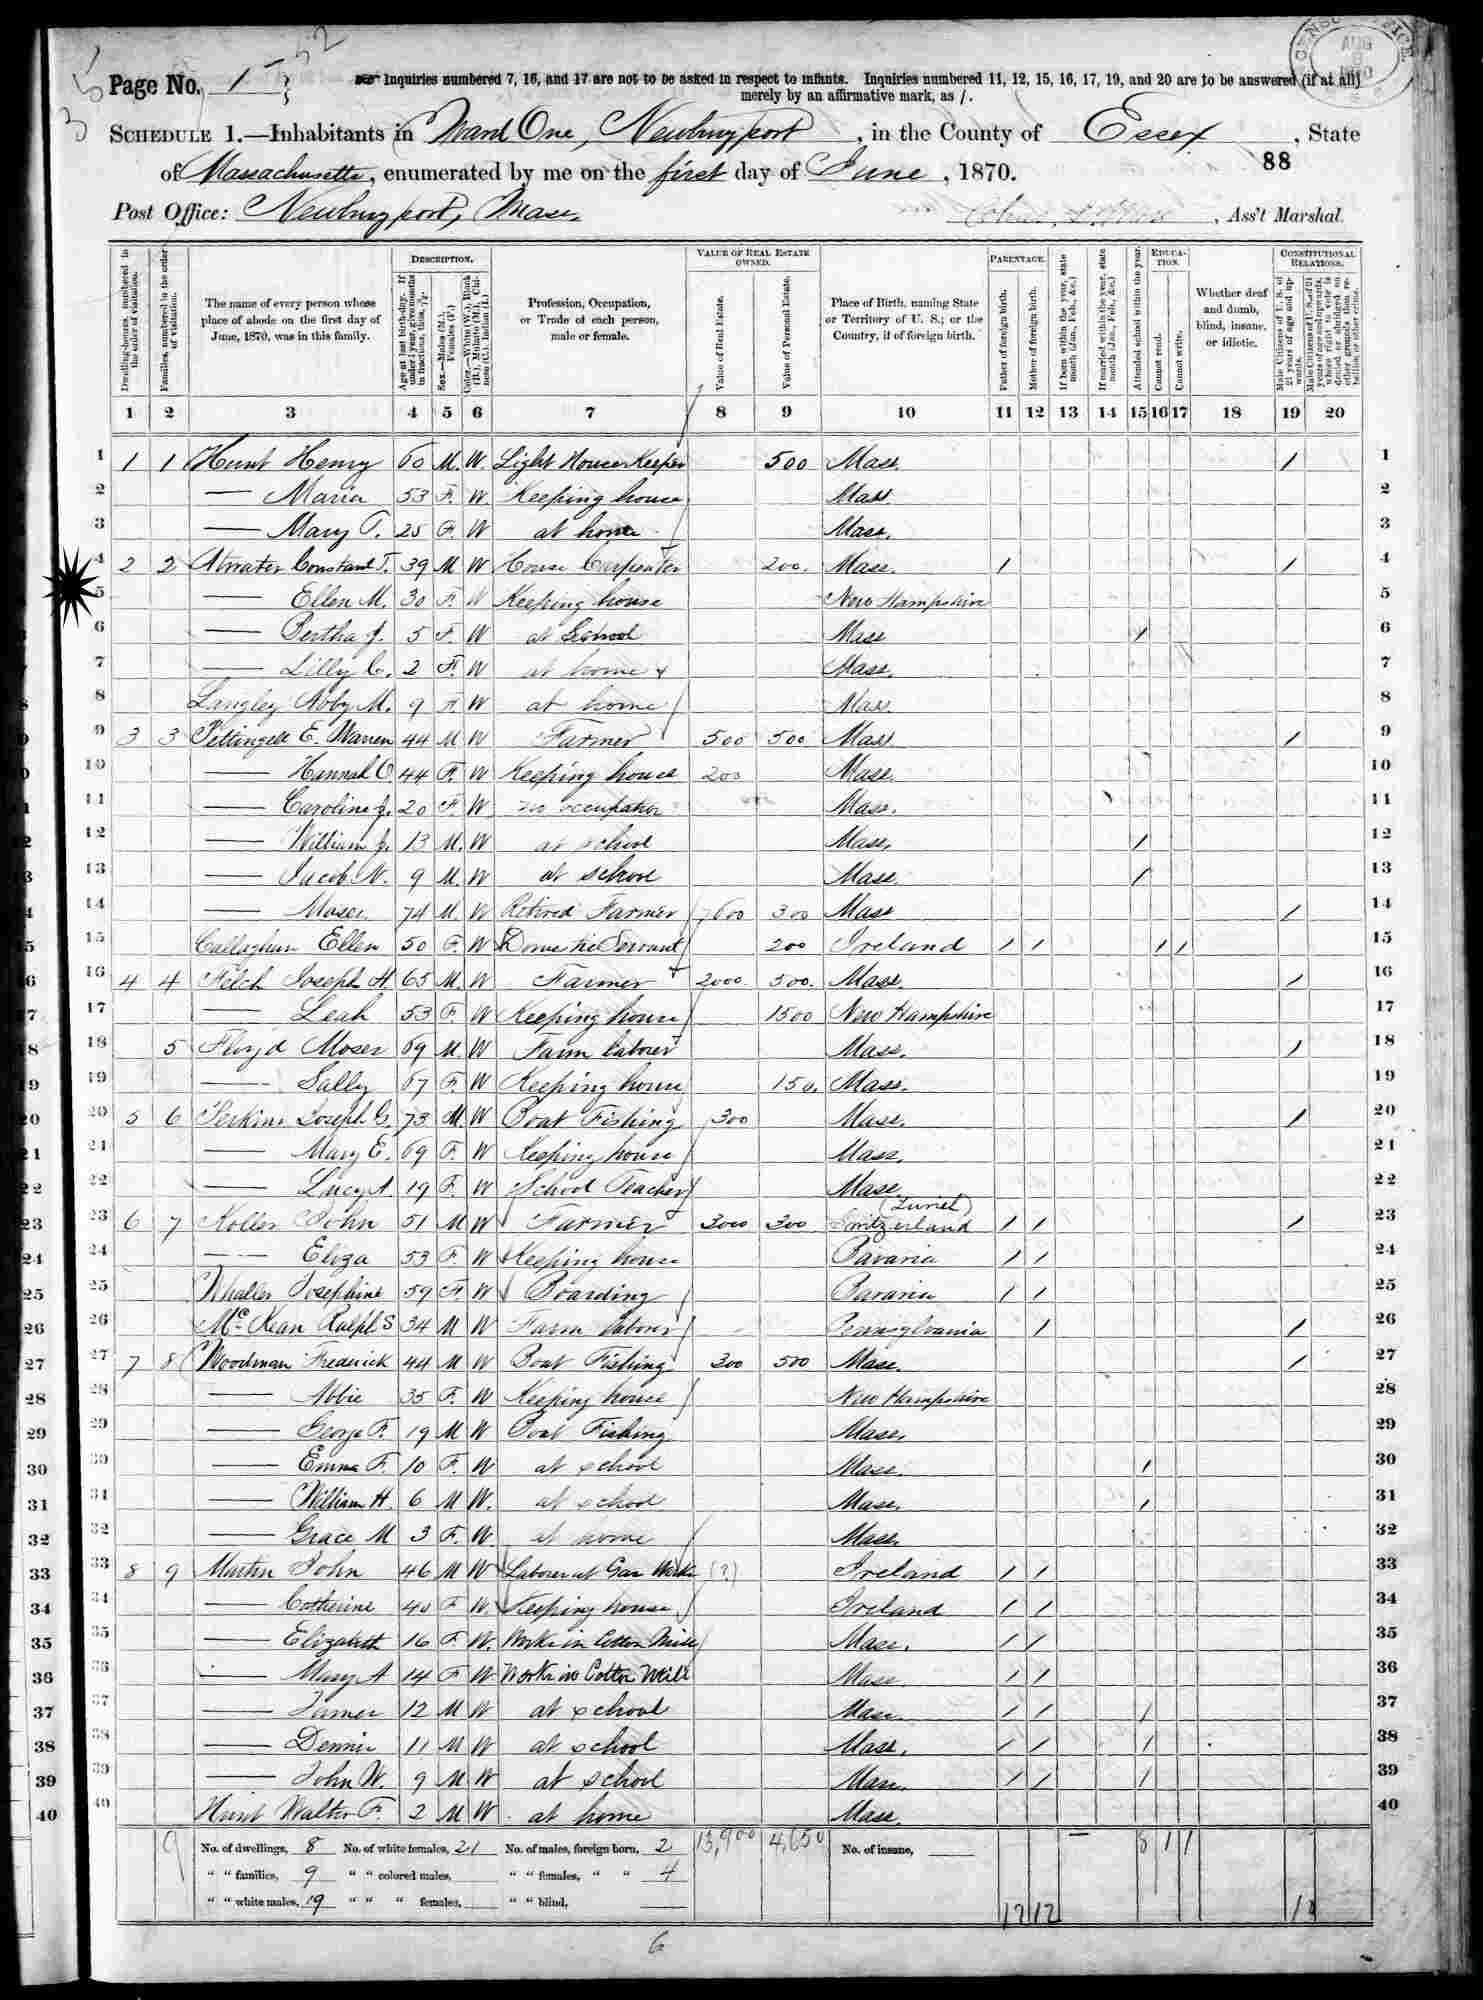 Page No. 1
Inquiries numbered 7, 16, and 17 are not to be asked in respect to infants. Inquiries numbered 11, 12, 15, 16, 17, 19, and 20 are to be answered (if at all)
merely by an affirmative mark, as /.
SCHEDULE 1.—Inhabitants in Ward One, Newburyport, in the County of Essex, State
of Massachusetts, enumerated by me on the first day of June, 1870.
88
Post Office: Newburyport, Mass. Ass't Marshal.
Dwelling-houses, numbered in the order of visitation.
Families, numbered in the order of visitation.
The name of every person whose place of abode on the first day of June, 1870, was in this family.
DESCRIPTION.
Age at last birth-day. If under 1 year, give months in fractions, thus, 3/12.
Sex.—Males (M.), Females (F.)
Color.—White (W.), Black (B.), Mulatto (M.), Chinese (C.), Indian (I.)
Profession, Occupation, or Trade of each person, male or female.
VALUE OF REAL ESTATE OWNED.
Value of Real Estate.
Value of Personal Estate.
Place of Birth, naming State or Territory of U. S.; or the Country, if of foreign birth.
PARENTAGE.
Father of foreign birth.
Mother of foreign birth.
If born within the year, state month (Jan., Feb., &c.)
If married within the year, state month (Jan., Feb., &c.)
Attended school within the year.
EDUCATION.
Cannot read.
Cannot write.
Whether deaf and dumb, blind, insane, or idiotic.
CONSTITUTIONAL RELATIONS.
Male Citizens of U. S. of 21 years of age and upwards.
Male Citizens of U. S. of 21 years of age and upwards, where right to vote is denied or abridged on other grounds than rebellion or other crime.
1 2 3 4 5 6 7 8 9 10 11 12 13 14 15 16 17 18 19 20
1 1 1 Hunt Henry 60 M. W. Light House Keeper 500 Mass. / 1
2 — Maria 53 F. W. Keeping house Mass 2
3 — Mary T. 25 F. W at home Mass. 3
4 2 2 Atwater Constant T. 39 M. W House Carpenter 200. Mass. / / 4
5 — Ellen M. 30 F. W Keeping house New Hampshire 5
6 — Bertha J. 5 F. W at School Mass / 6
7 — Lilly C. 2 F. W at home Mass. 7
8 Langley Abby M. 9 F. W at home Mass. 8
9 3 3 Pettingell E. Warren 44 M W Farmer 500 500 Mass / 9
10 — Hannah O. 44 F. W Keeping house 200 Mass. 10
11 — Caroline J. 20 F. W no occupation Mass. 11
12 — William J. 13 M. W at school Mass. / 12
13 — Jacob N. 9 M. W at school Mass. / 13
14 — Moses 74 M. W Retired Farmer 7600 300 Mass / 14
15 Callaghan Ellen 50 F. W Domestic Servant 200 Ireland / / / / 15
16 4 4 Felch Joseph H. 65 M. W Farmer 2000. 500. Mass. / 16
17 — Leah 53 F. W Keeping house 1500 New Hampshire 17
18 5 Floyd Moses 69 M. W Farm laborer Mass. / 18
19 — Sally 67 F. W Keeping house 150. Mass. 19
20 5 6 Perkins Joseph G. 73 M. W Boat Fishing 300 Mass. / 20
21 — Mary E. 69 F. W Keeping house Mass. 21
22 — Lucy A. 19 F. W School Teacher Mass 22
23 6 7 Koller John 51 M W Farmer 3000 300 Switzerland (Zurich) / / / 23
24 — Eliza 53 F. W Keeping house Bavaria / / 24
25 Whaller Josephine 59 F. W Boarding Bavaria / / 25
26 McKean Ralph S 34 M W Farm laborer Pennsylvania / / 26
27 7 8 Woodman Frederick 44 M W Boat Fishing 300 500 Mass. / 27
28 — Abbie 35 F. W Keeping house New Hampshire 28
29 — George F. 19 M W Boat Fishing Mass. 29
30 — Emma F. 10 F. W at school Mass. / 30
31 — William H. 6 M W. at school Mass. / 31
32 — Grace M 3 F. W. at home Mass. 32
33 8 9 Martin John 46 M W Laborer at Gas Works (?) Ireland / / 33
34 — Catherine 40 F W. Keeping house Ireland / / 34
35 — Elizabeth 16 F. W. Works in Cotton Mill Mass. / / 35
36 — Mary A 14 F W Works in Cotton Mill Mass. / / 36
37 — James 12 M W at school Mass. / / / 37
38 — Dennis 11 M W at school Mass. / / / 38
39 — John W. 9 M W at school Mass. / / / 39
40 Hunt Walter F. 2 M W. at home Mass. 40
9 No. of dwellings, 8 No. of white females, 21 No. of males, foreign born, 2 13,900 4,650 No. of insane, 8 1 1
" " families, 9 " " colored males, " " females, " " 4
" " white males, 19 " " " females, " " blind, 12 12
6